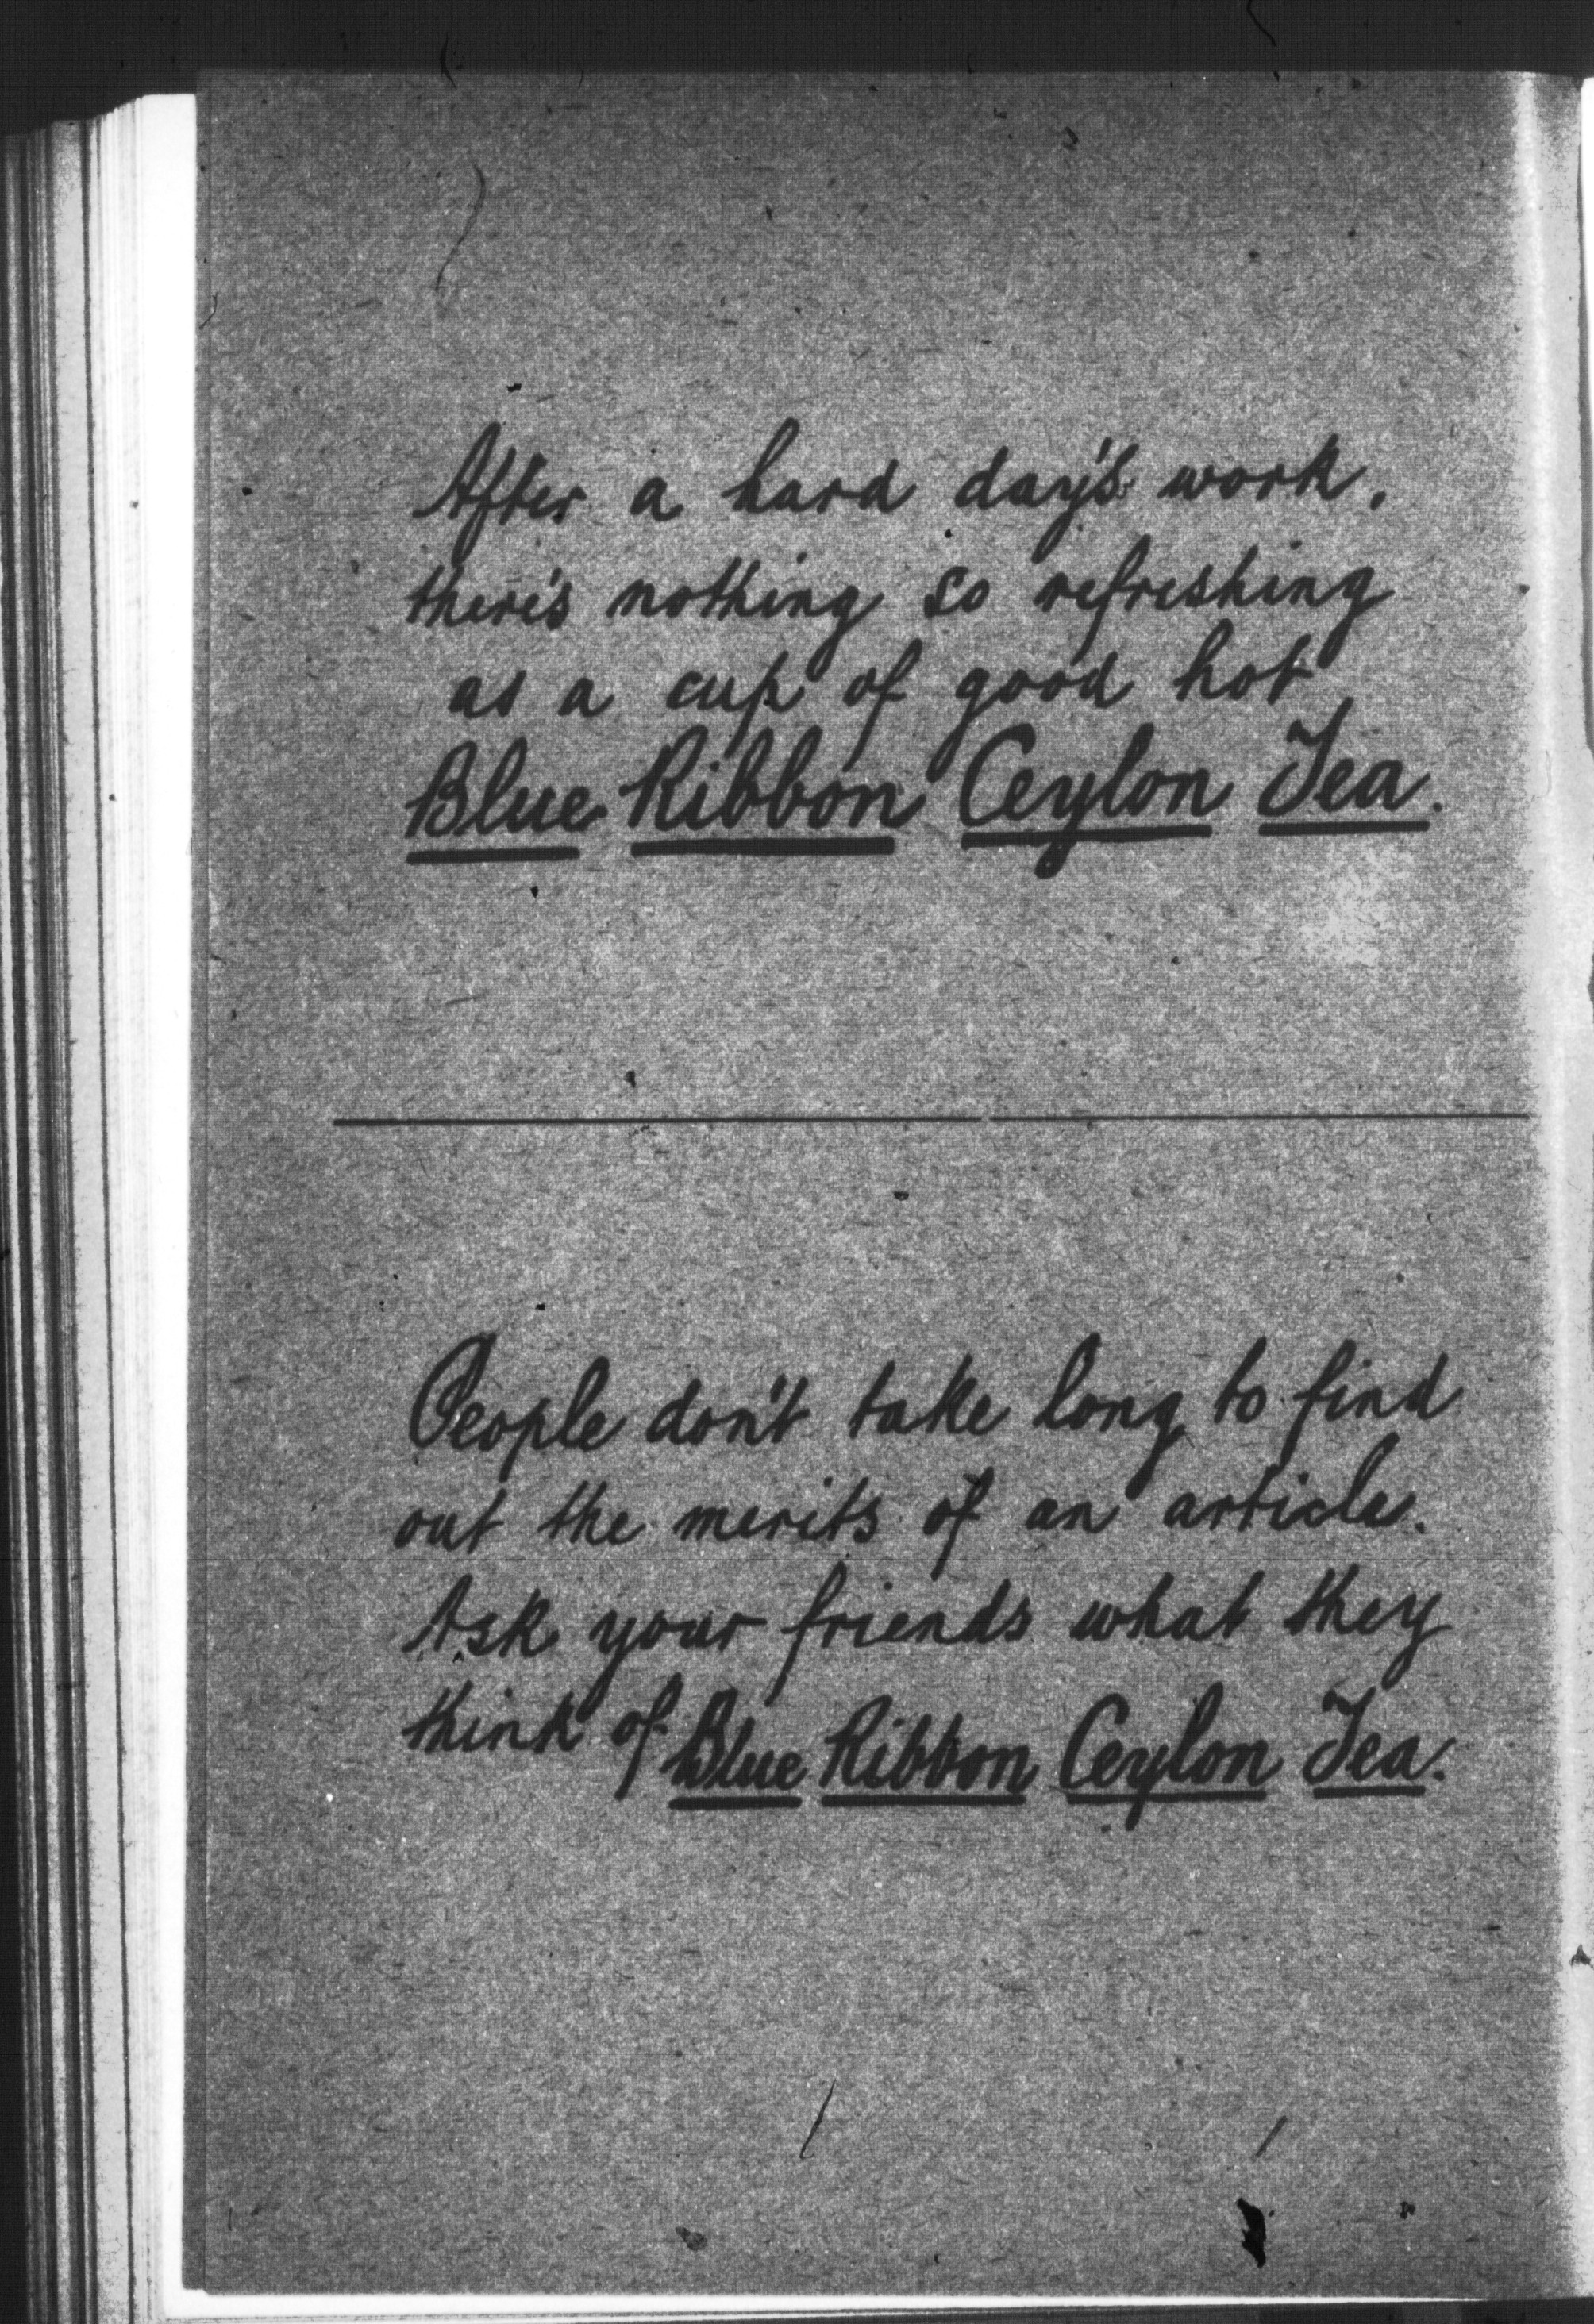 After a hard day's work,
there's nothing so refreshing
as a cup of good hot
Blue Ribbon Ceylon Tea.
People don't take long to find
out the merits of an article.
Ask your friends what they
think of Blue Ribbon Ceylon Tea.